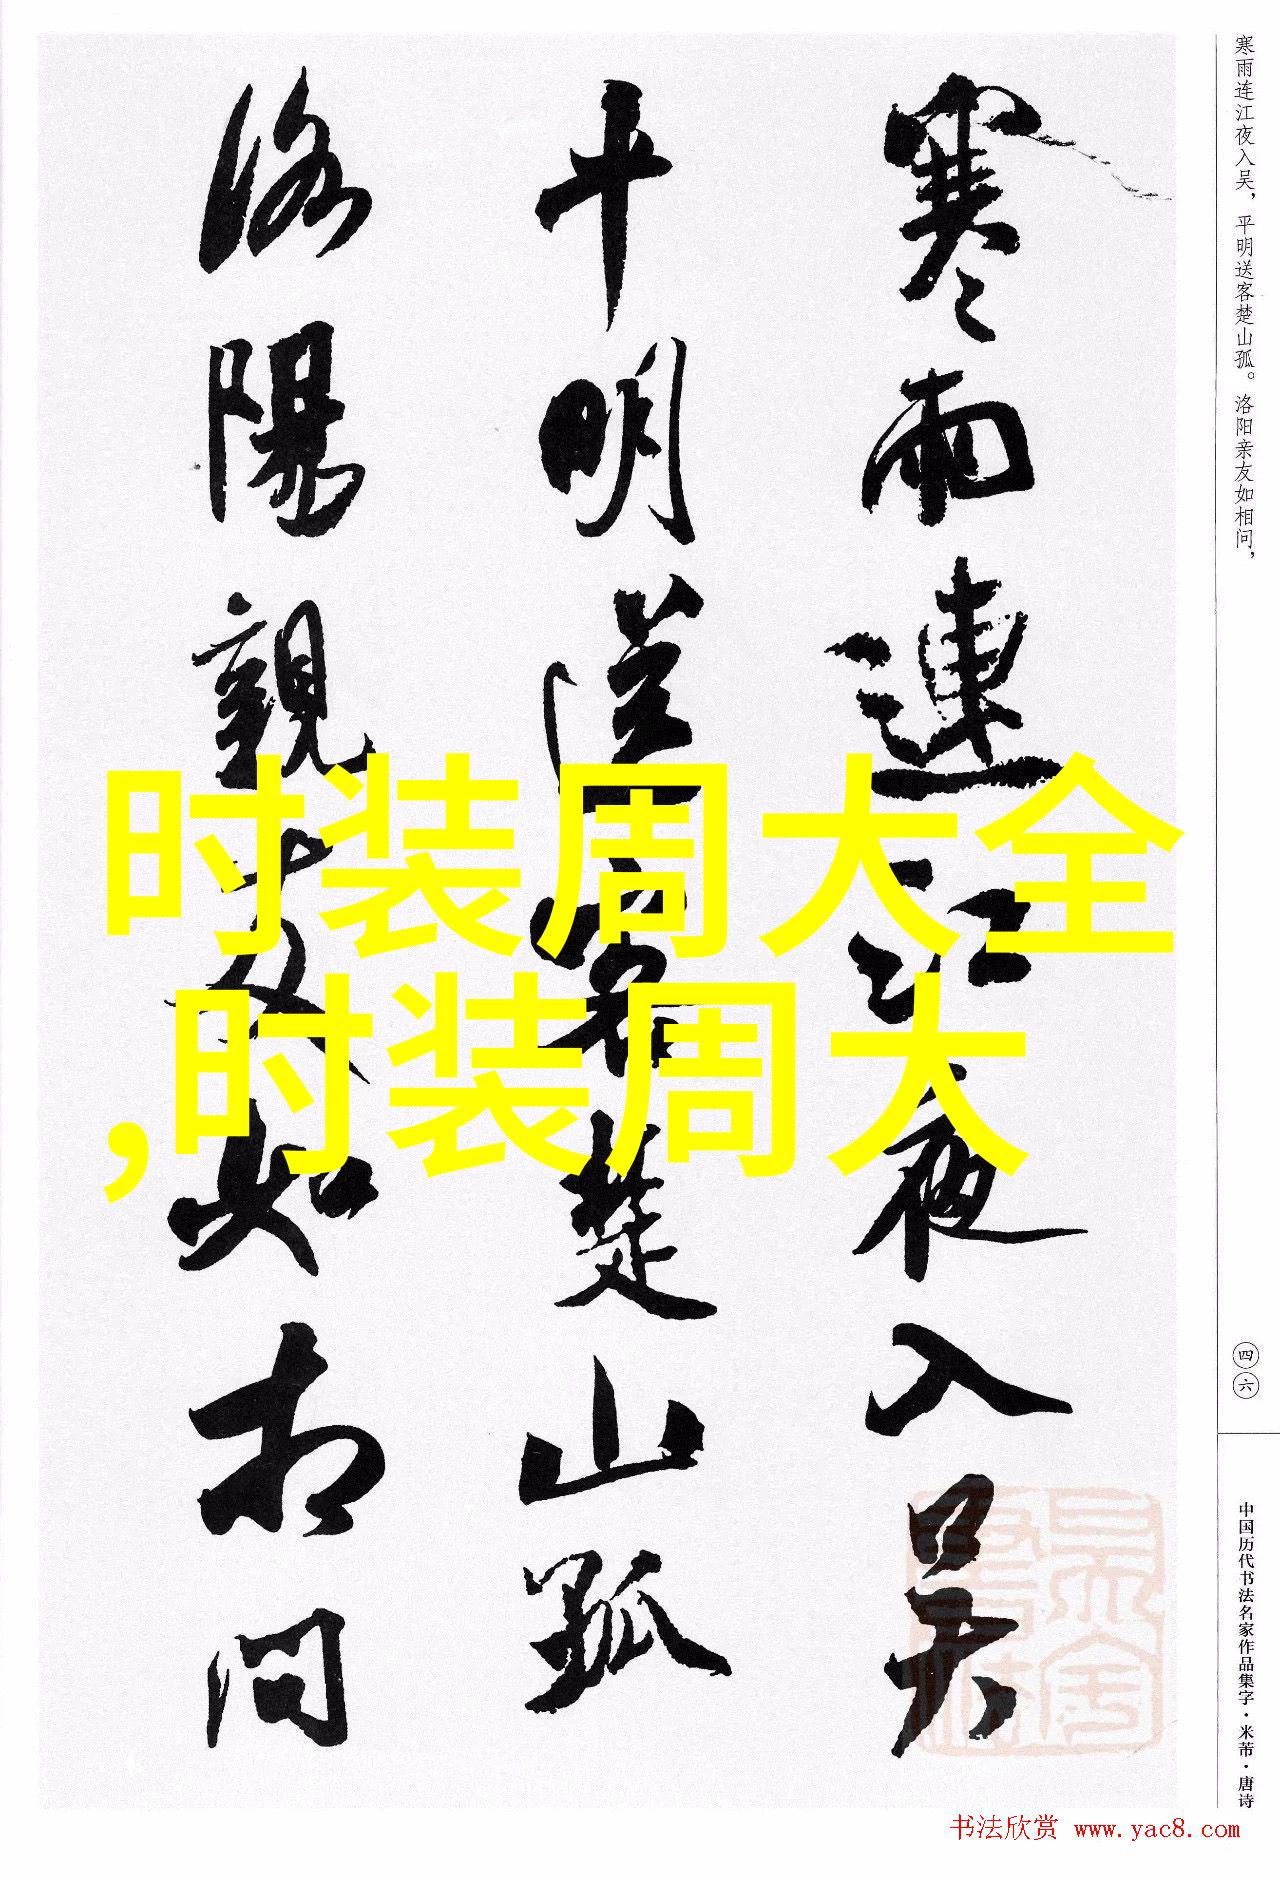 寒雨連江夜入吴
平明送客楚山孤
洛陽親友如相問
寒雨连江夜入吴，平明送客楚山孤。洛阳亲友如相问，
四六
中国历代书法名家作品集字·米芾·唐诗
时装周大全
,时装周大
书法欣赏 www.yac8.com